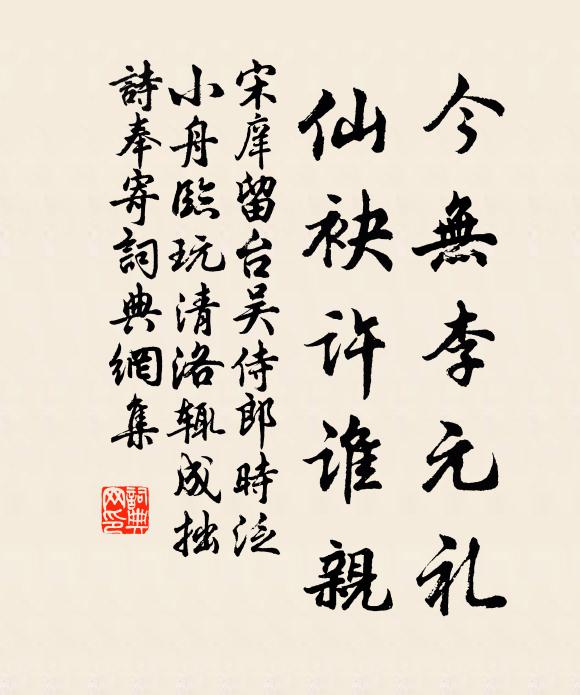 今無李元礼
仙袂许谁親
宋庠留台吴侍郎時泛
小舟臨玩清洛輒成拙
詩奉寄詞典網集
詞典
网印